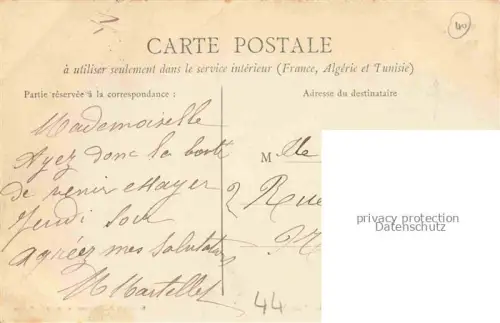 40
CARTE POSTALE
à utiliser seulement dans le service intérieur (France, Algérie et Tunisie)
Partie réservée à la correspondance :
Mademoiselle
Ayez donc la bonté
de venir essayer
Jeudi soir
agréez mes salutations
M Martellet
Adresse du destinataire
M lle
2 Rue
44
privacy protection
Datenschutz